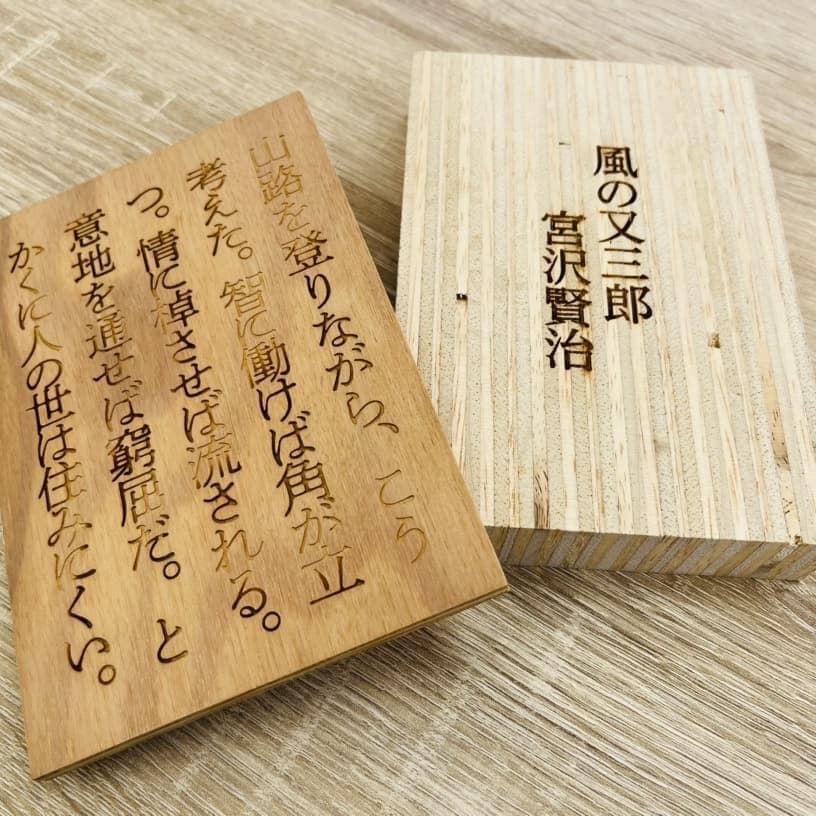 風の又三郎
宮沢賢治
山路を登りながら、こう
考えた。智に働けば角が立
つ。情に棹させば流される。
意地を通せば窮屈だ。と
かくに人の世は住みにくい。